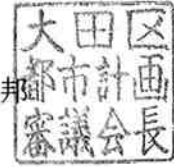 大田区
都市計画
審議会長
邦